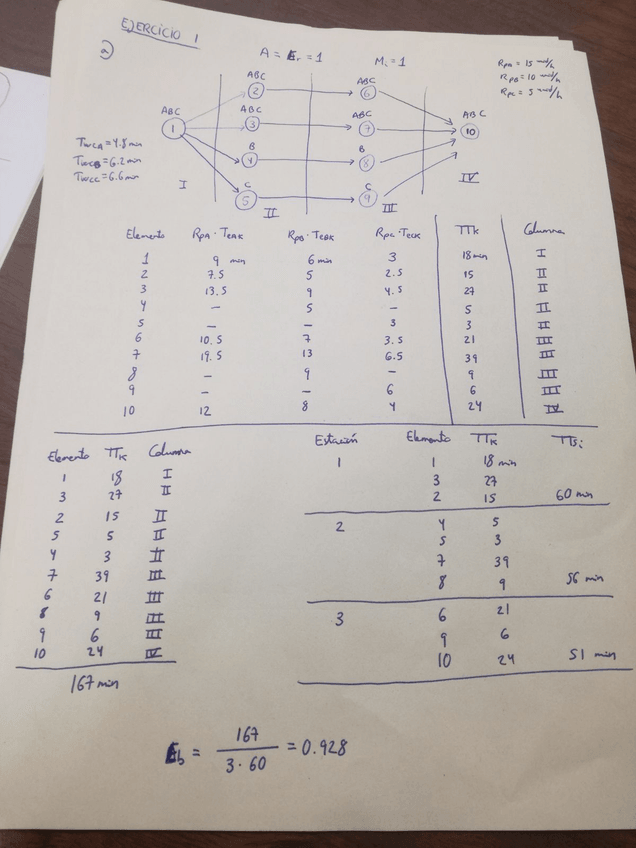 EJERCICIO 1
a)
A = Er = 1
Mi = 1
RpA = 15 und/h
RpB = 10 und/h
RpC = 5 und/h
TwcA = 4.8 min
TwcB = 6.2 min
TwcC = 6.6 min
ABC ABC
2 6
ABC ABC ABC ABC
1 3 7 10
B B
4 8
C C
5 9
I II III IV
Elemento RpA · TeAK RpB · TeBK RpC · TeCK TTK Columna
1 9 min 6 min 3 18 min I
2 7.5 5 2.5 15 II
3 13.5 9 4.5 27 II
4 — 5 — 5 II
5 — — 3 3 II
6 10.5 7 3.5 21 III
7 19.5 13 6.5 39 III
8 — 9 — 9 III
9 — — 6 6 III
10 12 8 4 24 IV
Elemento TTK Columna
1 18 I
3 27 II
2 15 II
5 5 II
4 3 II
7 39 III
6 21 III
8 9 III
9 6 III
10 24 IV
167 min
Estación Elemento TTK TTSi
1 1 18 min
3 27
2 15 60 min
2 4 5
5 3
7 39
8 9 56 min
3 6 21
9 6
10 24 51 min
Eb = 167 / 3·60 = 0.928